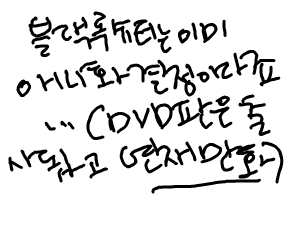 블랙록슈터는이미
애니화결정이라구요
... (DVD판은둘
사 하고 (연재만화)